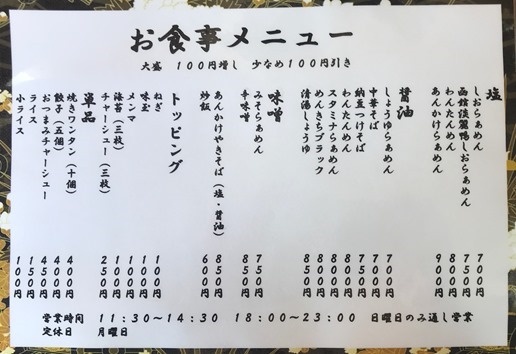 お食事メニュー
大盛 100円増し 少なめ100円引き
塩
しおらぁめん 700円
函館淡麗鴨しおらぁめん
わんたんめん
あんかけらぁめん 900円
醤油
しょうゆらぁめん 700円
中華そば 700円
納豆つけそば
わんたんめん
スタミナらぁめん
めんきちブラック
清湯しょうゆ
味噌
みそらぁめん 750円
辛味噌 850円
あんかけやきそば（塩・醤油） 850円
炒飯 600円
トッピング
ねぎ 100円
味玉 100円
メンマ 100円
海苔（三枚） 100円
チャーシュー（三枚） 250円
単品
焼きワンタン（十個） 400円
餃子（五個） 400円
おつまみチャーシュー
ライス 150円
小ライス 100円
営業時間 11:30～14:30 18:00～23:00 日曜日のみ通し営業
定休日 月曜日